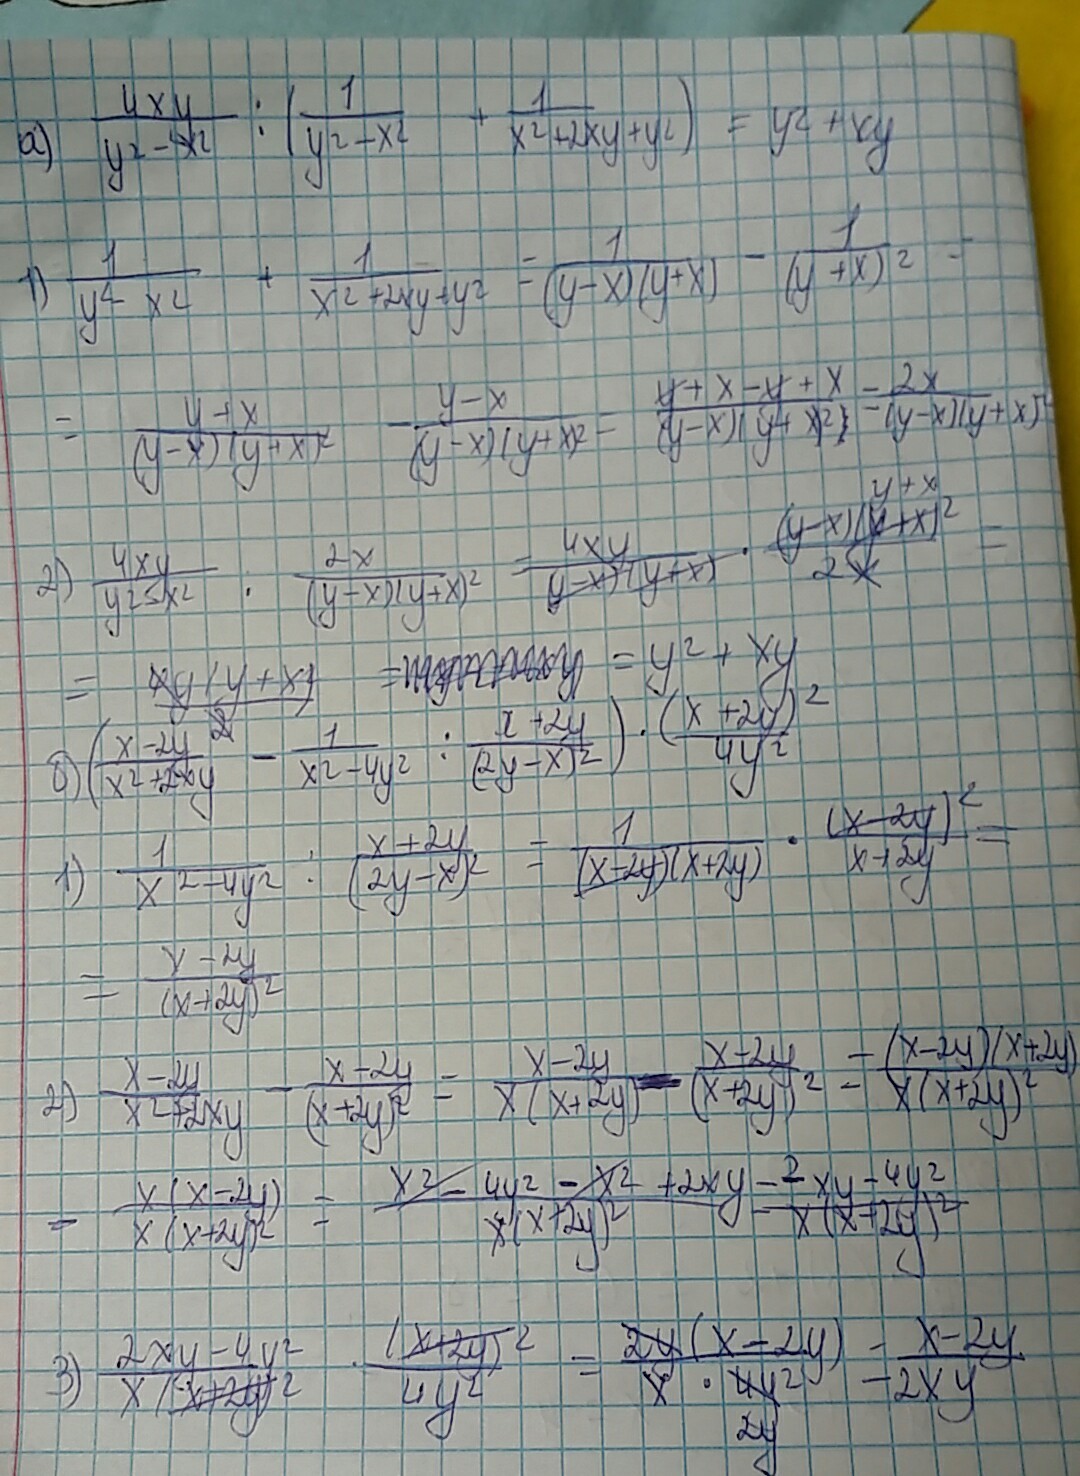 а) 4xy/(y²-x²) : (1/(y²-x²) + 1/(x²+2xy+y²)) = y²+xy
1) 1/(y²-x²) + 1/(x²+2xy+y²) = 1/((y-x)(y+x)) - 1/(y+x)² =
= (y+x)/((y-x)(y+x)²) - (y-x)/((y-x)(y+x)²) = (y+x-y+x)/((y-x)(y+x)²) = 2x/((y-x)(y+x)²)
2) 4xy/(y²-x²) : 2x/((y-x)(y+x)²) = 4xy/((y-x)(y+x)) · (y-x)(y+x)²/2x =
y+x
= 4xy(y+x)/2 = = y²+xy
б) ((x-2y)/(x²+2xy) - 1/(x²-4y²) : (x+2y)/(2y-x)²) · (x+2y)²/4y²
1) 1/(x²-4y²) : (x+2y)/(2y-x)² = 1/((x-2y)(x+2y)) · (x-2y)²/(x+2y) =
= (x-2y)/(x+2y)²
2) (x-2y)/(x²+2xy) - (x-2y)/(x+2y)² = (x-2y)/(x(x+2y)) - (x-2y)/(x+2y)² = (x-2y)(x+2y)/(x(x+2y)²)
- x(x-2y)/(x(x+2y)²) = (x²-4y²-x²+2xy)/(x(x+2y)²) = (2xy-4y²)/(x(x+2y)²)
3) (2xy-4y²)/(x(x+2y)²) · (x+2y)²/4y² = 2y(x-2y)/(x·4y²) = (x-2y)/2xy
2y